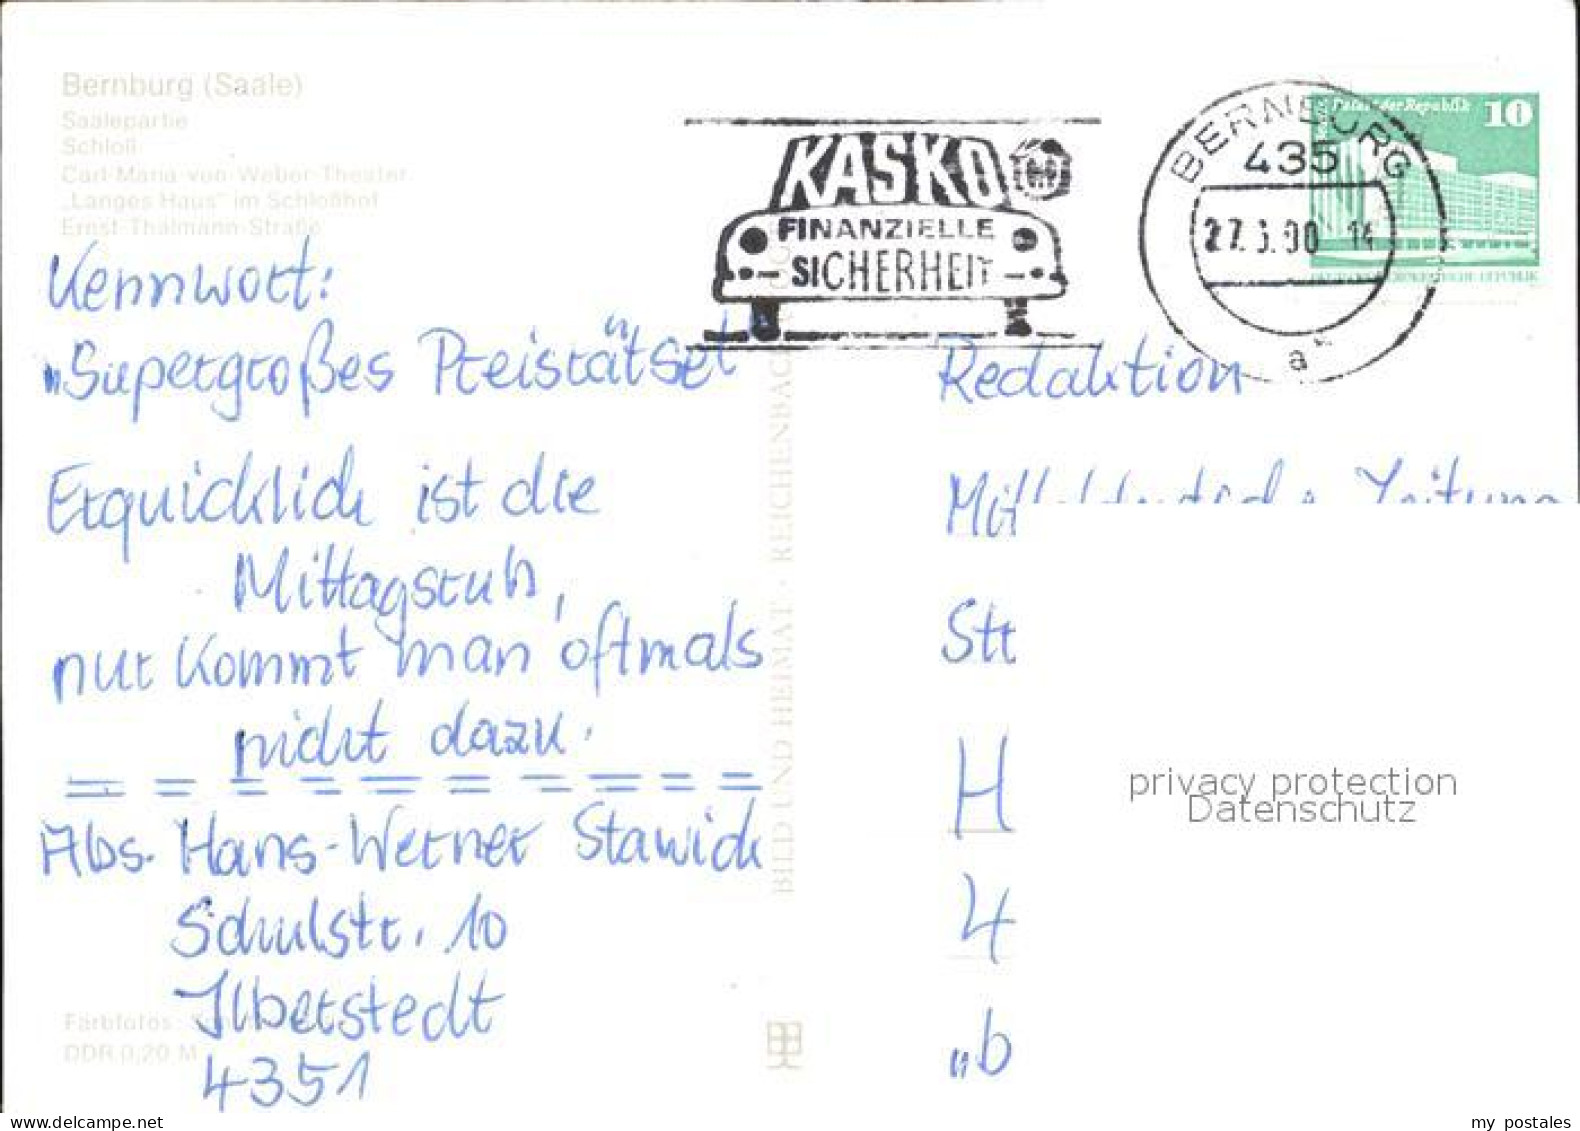 Bernburg (Saale)
Saalepartie
Schloß
Carl-Maria-von-Weber-Theater
„Langes Haus“ im Schloßhof
Ernst-Thälmann-Straße
KASKO
FINANZIELLE
SICHERHEIT
BERNBURG
435
a
Palast der Republik 10
Kennwort:
„Supergroßes Preisrätsel“
Erquicklich ist die
Mittagsruh,
nur kommt man oftmals
nicht dazu.
Abs. Hans-Werner Stawick
Schulstr. 10
Ilberstedt
4351
Redaktion
Mitteldeutsche Zeitung
Str
H
4
„b
BILD UND HEIMAT · REICHENBACH
Farbfotos:
DDR 0,20 M
privacy protection
Datenschutz
www.delcampe.net
my_postales